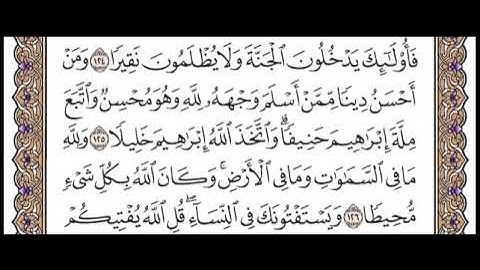 فَأُو۟لَٰٓئِكَ يَدْخُلُونَ ٱلْجَنَّةَ وَلَا يُظْلَمُونَ نَقِيرًا ١٢٤ وَمَنْ
أَحْسَنُ دِينًا مِّمَّنْ أَسْلَمَ وَجْهَهُۥ لِلَّهِ وَهُوَ مُحْسِنٌ وَٱتَّبَعَ
مِلَّةَ إِبْرَٰهِيمَ حَنِيفًا ۗ وَٱتَّخَذَ ٱللَّهُ إِبْرَٰهِيمَ خَلِيلًا ١٢٥ وَلِلَّهِ
مَا فِى ٱلسَّمَٰوَٰتِ وَمَا فِى ٱلْأَرْضِ ۚ وَكَانَ ٱللَّهُ بِكُلِّ شَىْءٍ
مُّحِيطًا ١٢٦ وَيَسْتَفْتُونَكَ فِى ٱلنِّسَآءِ ۖ قُلِ ٱللَّهُ يُفْتِيكُمْ